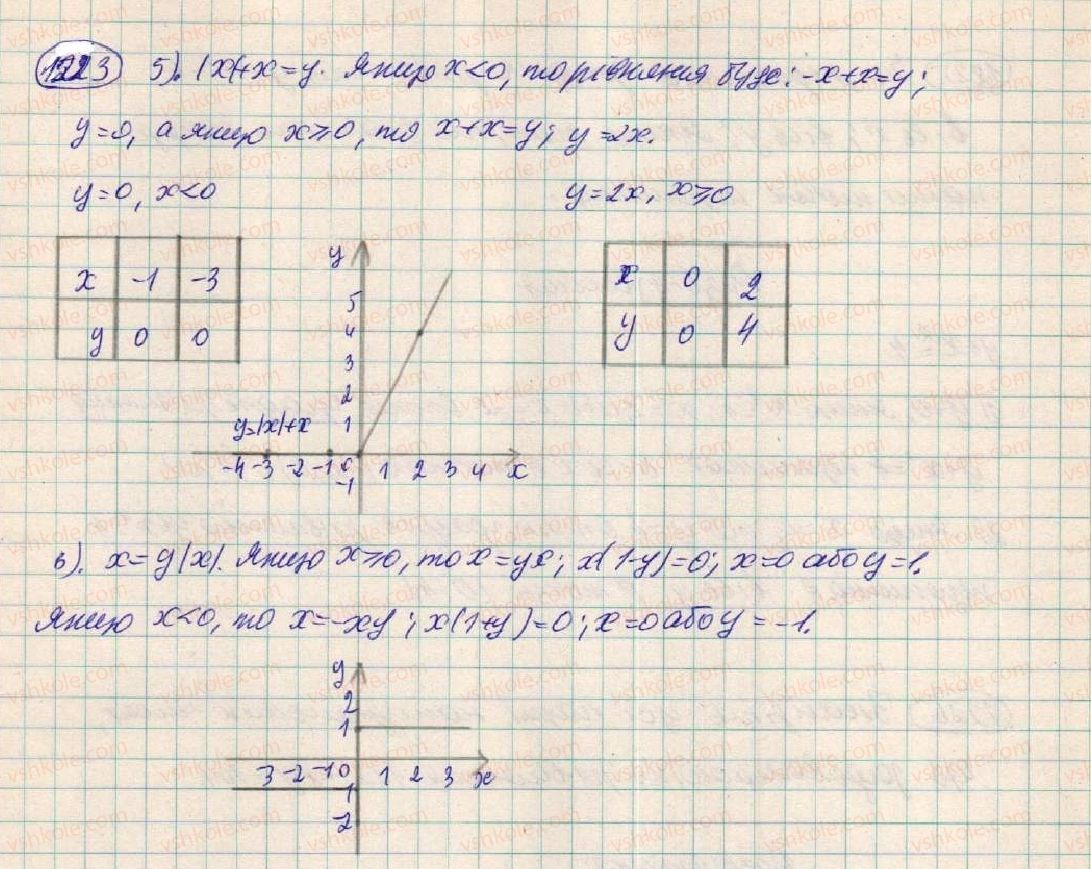 1223 5). |x|+x=y. Якщо x<0, то рівняння буде: -x+x=y;
y=0, а якщо x≥0, то x+x=y; y=2x.
y=0, x<0 y=2x, x≥0
x -1 -3
y 0 0
y
5
4
3
2
1
y=|x|+x
-4 -3 -2 -1 0 1 2 3 4 x
-1
x 0 2
y 0 4
в). x=y|x|. Якщо x≥0, то x=yx; x(1-y)=0; x=0 або y=1.
Якщо x<0, то x=-xy; x(1+y)=0; x=0 або y=-1.
y
2
1
3 -2 -1 0 1 2 3 x
1
-2
vshkole.com